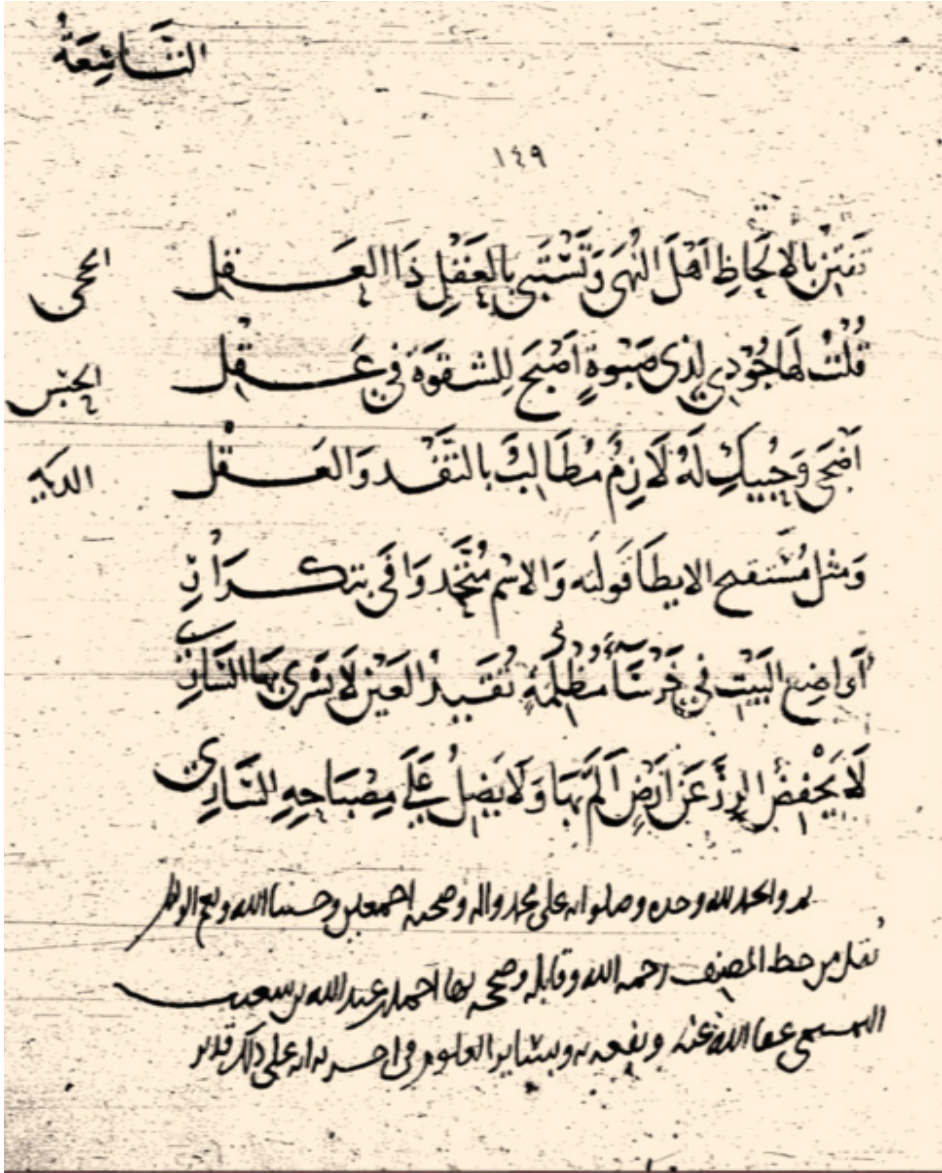 التاسعة
١٤٩
تفتن بالالحاظِ اَهْلَ النُّهَى وَتَسْتَبِي بِالعَقْلِ ذَا العَقلِ الحجى
قُلْتُ لَهَا جُوْدِي لِذِي صَبْوَةٍ اَصْبَحَ لِلشقْوَةِ فِي عَقْلِ الحبس
اَضْحَى وَحُبِّيكِ لَهُ لَازِمٌ مُطَالِبٌ بِالنَّقْدِ وَالعَقْلِ الديه
وَمثل مُسْتقبح الايطَا قولنه وَالاسْم مُتَّحِد وَافَى بتكرَارِ
اَوَاضِع البَيْتِ فِي خَرْسَاء مُظْلِمَةٍ تُقَيِّدُ العَيْرَ لَا يَسْرِي بِهَا السَّارِي
لَا يَخْفِضُ الرِزَّ عَنْ اَرْضٍ اَلَمَّ بِهَا وَلَا يَضِلُّ عَلَى مِصْبَاحِهِ السَّارِي
والحمد لله وحده وصلواته على محمد واله وصحبه اجمعين وحسبنا الله ونعم الوكيل
نقل من خط المصنف رحمه الله وقابله وصححه بها احمد بن عبد الله بن سعيد
عفا الله عنه ونفعه به وبسائر العلوم انه على ذلك قدير